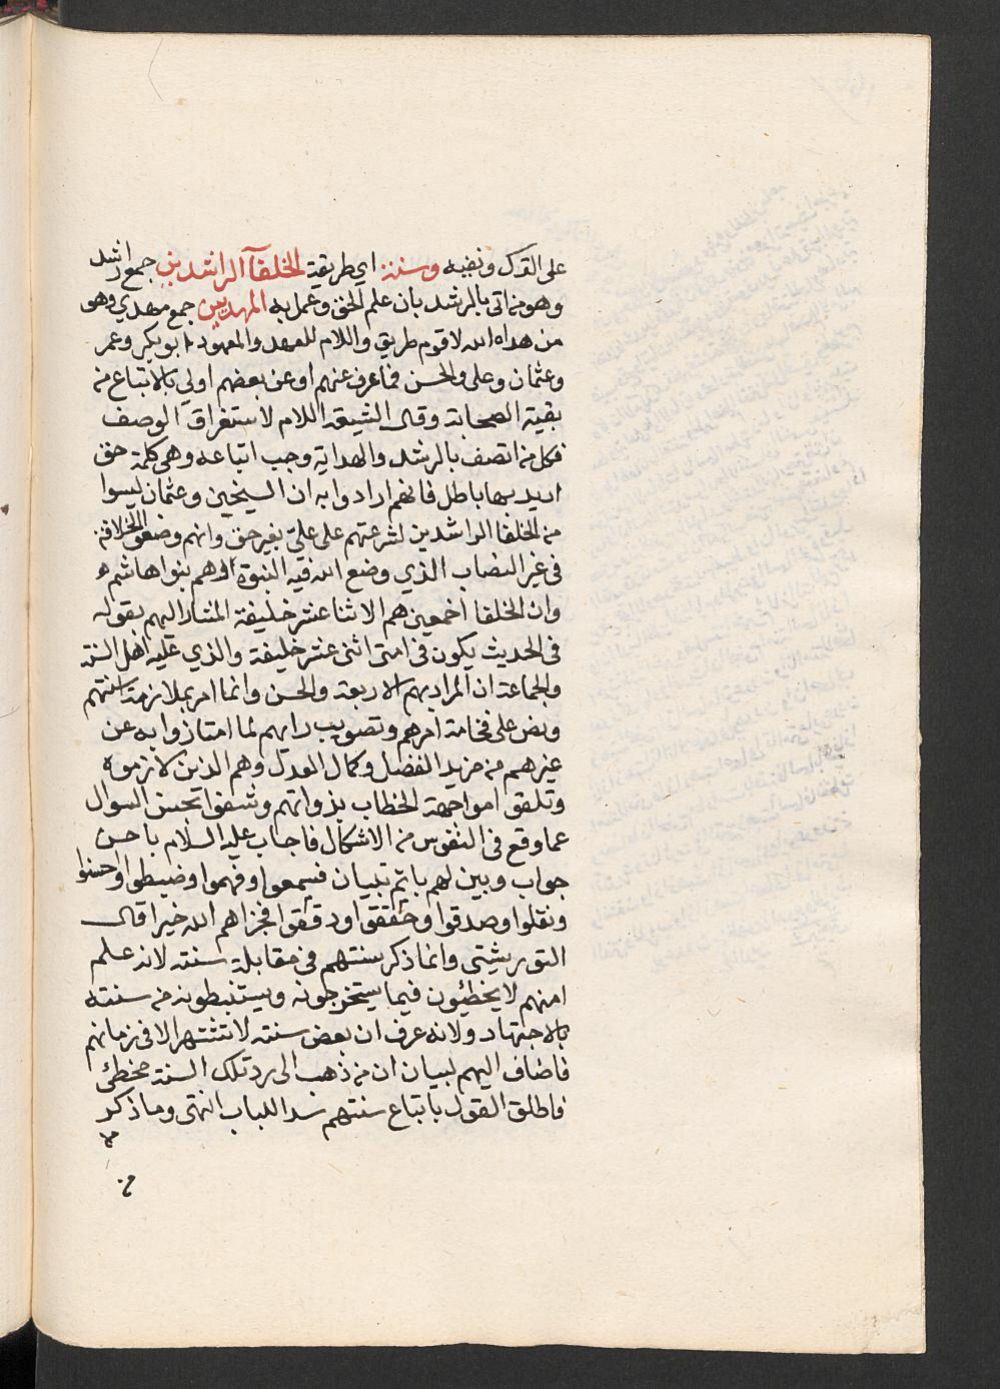 على الترك ونفيه وسنة اي طريقة الخلفآ الراشدين جمع راشد
وهو من اتى بالرشد بان علم الحق وعمل به المهديين جمع مهدي وهو
من هداه الله لاقوم طريق واللام للعهد والمعهود ابوبكر وعمر
وعثمان وعلى والحسن فما عرف عنهم او عن بعضهم اولى بالاتباع من
بقية الصحابة وقال الشيعة اللام لاستغراق الوصف
فكل من اتصف بالرشد والهداية وجب اتباعه وهى كلمة حق
اريد بها باطل فانهم ارادوا به ان الشيخين وعثمان ليسوا
من الخلفا الراشدين لشرعتهم على علي بغير حق وانهم وضعوا الخلافة
فى غير النصاب الذي وضع الله فيه النبوة وهم بنوا هاشم
وان الخلفا اجمعين هم الاثنا عشر خليفة المشار اليهم بقوله
فى الحديث يكون فى امتى اثنى عشر خليفة والذي عليه اهل السنة
والجماعة ان المراد بهم الاربعة والحسن وانما امر بملازمة سنتهم
ونص على فخامة امرهم وتصويب رايهم لما امتازوا به عن
غيرهم من مزيد الفضل وكمال العدل وهم الذين لازموه
وتلقوا مواجهة الخطاب بذواتهم وشفوا بحسن السوال
عما وقع فى النفوس من الاشكال فاجاب عليه السلام باحسن
جواب وبين لهم باتم تبيان فسمعوا وفهموا وضبطوا واحسنوا
ونقلوا وصدقوا وحققوا ودققوا فجزاهم الله خيرا قال
التوربشتى وانما ذكر سنتهم فى مقابلة سنته لانه علم
انهم لا يخطئون فيما يستخرجونه ويستنبطونه من سنته
بالاجتهاد ولانه عرف ان بعض سنته لا تشتهر الا فى زمانهم
فاضاف اليهم لبيان ان من ذهب الى رد تلك السنة مخطئ
فاطلق القول باتباع سنتهم سدا للباب انتهى وما ذكر
من